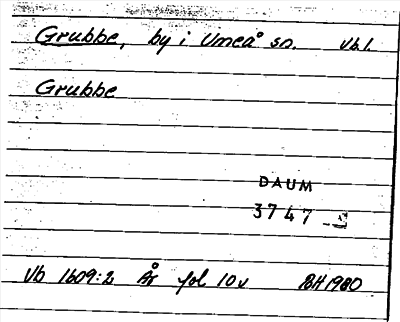 Grubbe, by i Umeå sn. Vb l.
Grubbe
DAUM
3747
Vb 1609:2 År fol 10v BH 1980